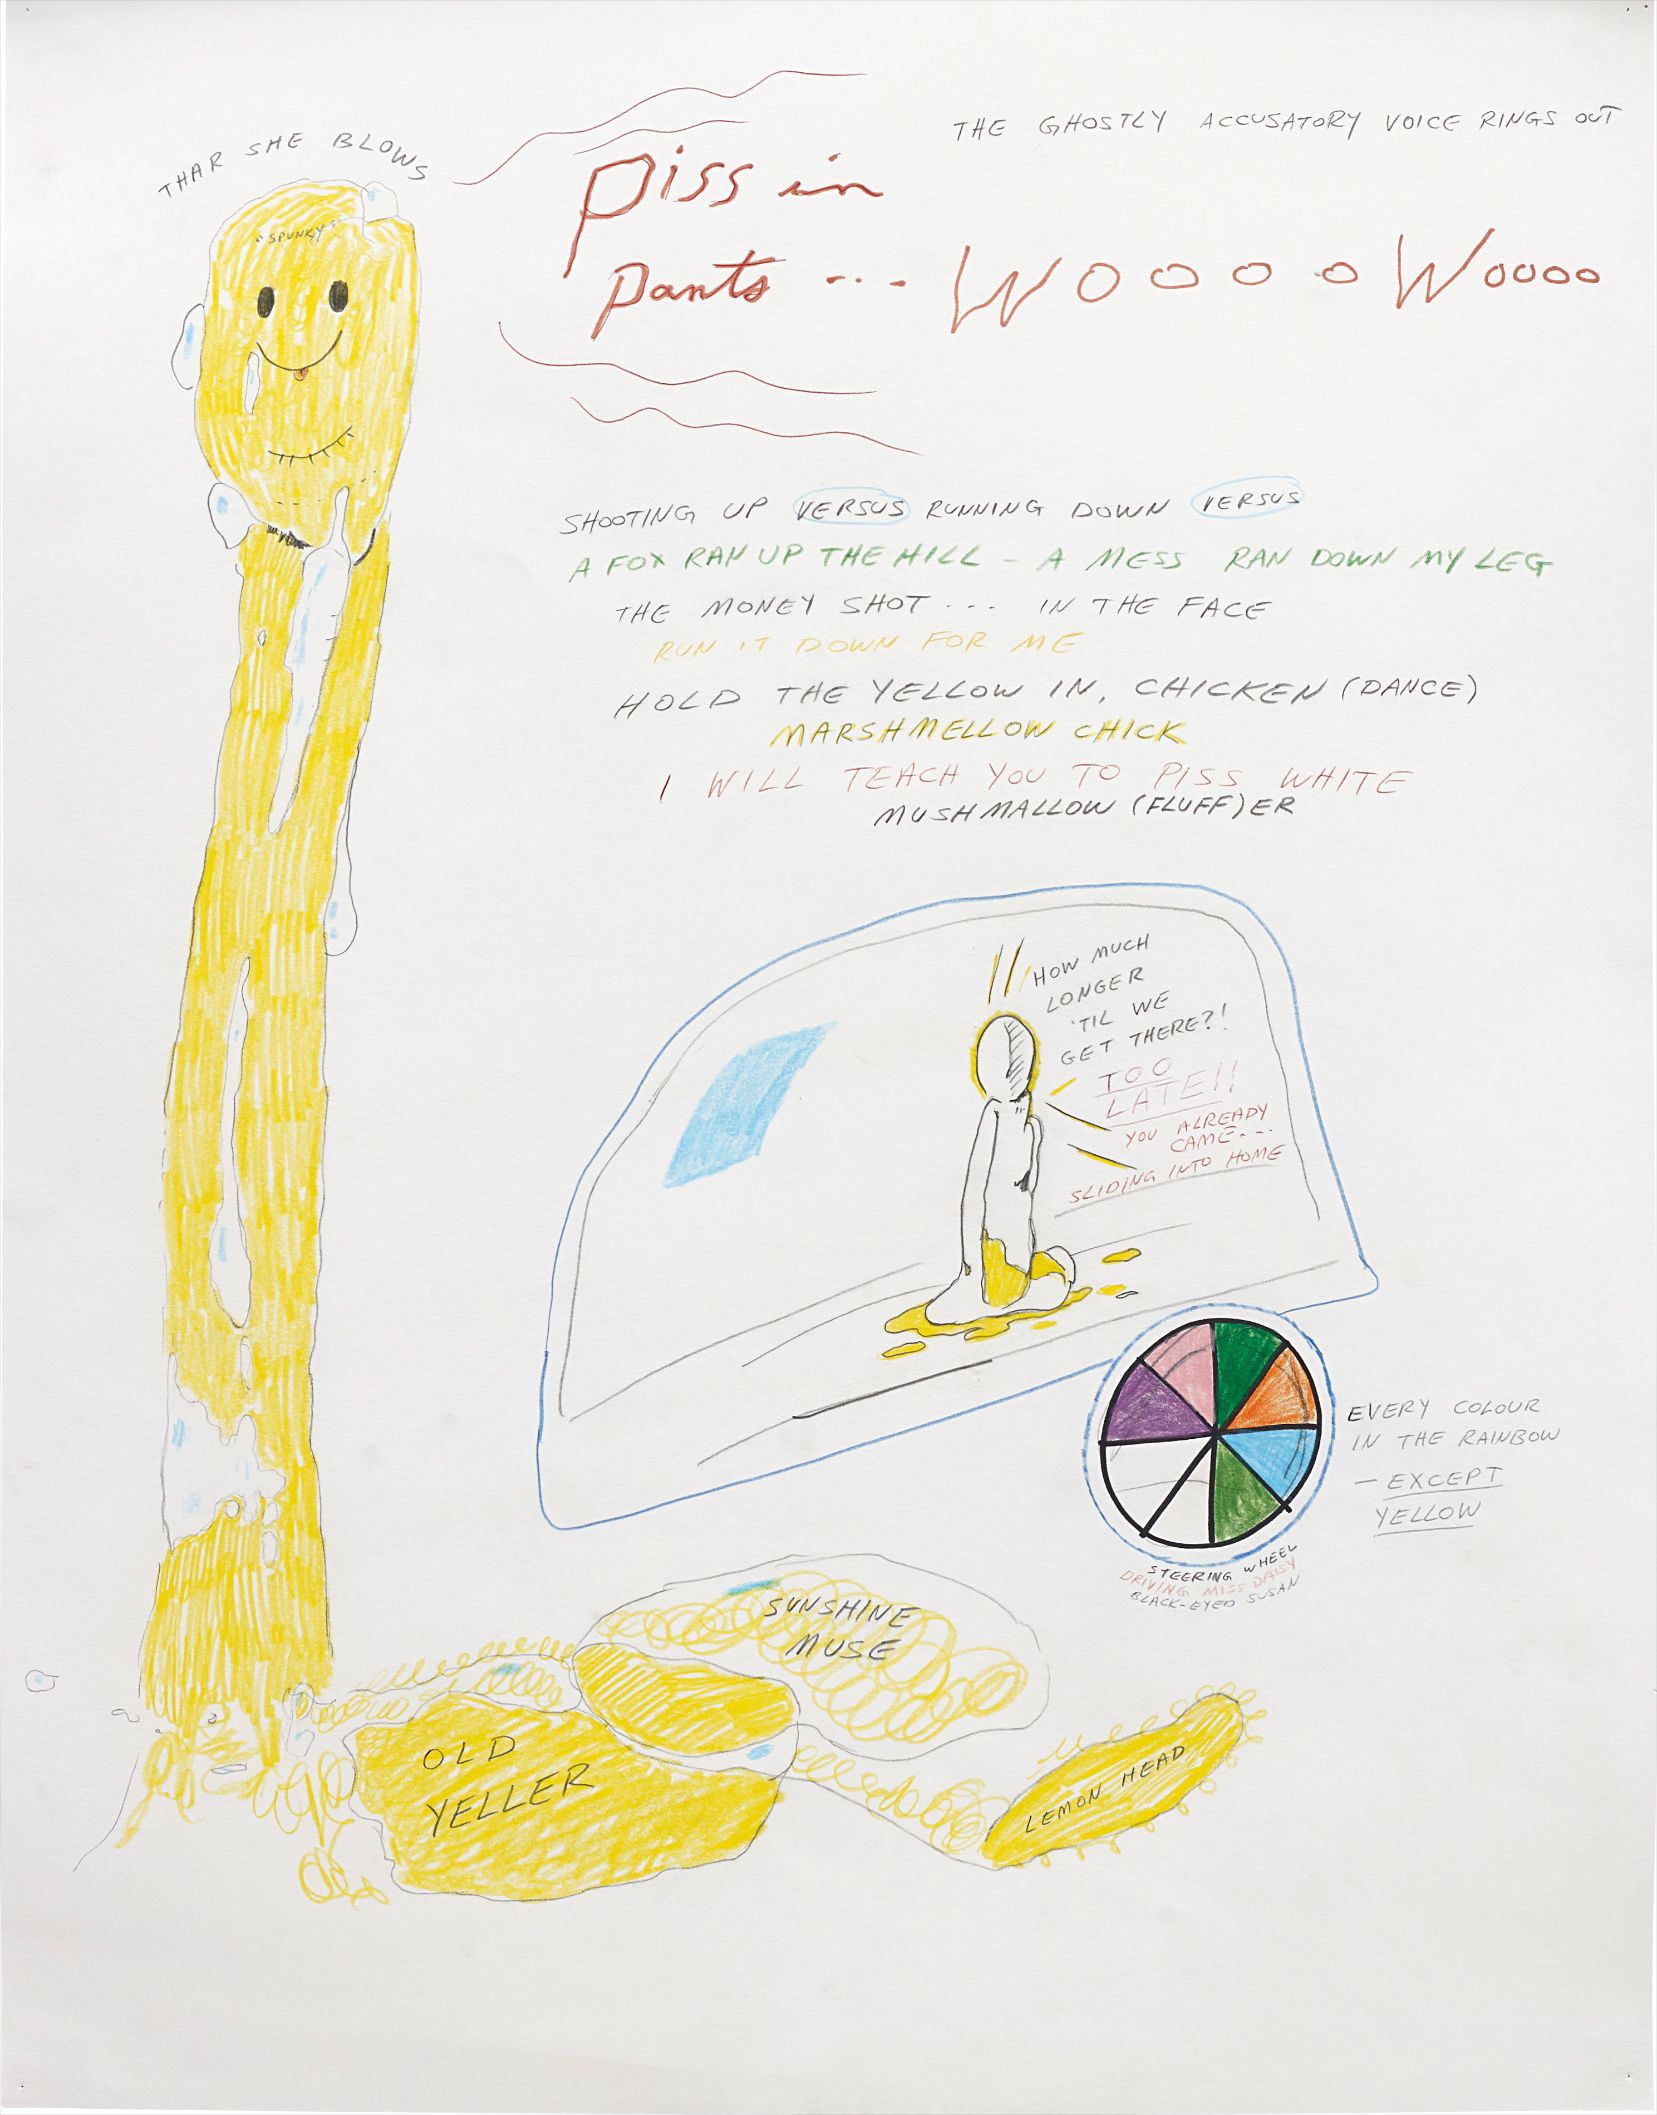 THAR SHE BLOWS
"SPUNKY"
THE GHOSTLY ACCUSATORY VOICE RINGS OUT
Piss in
pants ... WOOOO Woooo
SHOOTING UP VERSUS RUNNING DOWN VERSUS
A FOX RAN UP THE HILL - A MESS RAN DOWN MY LEG
THE MONEY SHOT ... IN THE FACE
RUN IT DOWN FOR ME
HOLD THE YELLOW IN, CHICKEN (DANCE)
MARSHMELLOW CHICK
I WILL TEACH YOU TO PISS WHITE
MUSHMALLOW (FLUFF)ER
HOW MUCH
LONGER
'TIL WE
GET THERE?!
TOO
LATE!!
YOU ALREADY
CAME...
SLIDING INTO HOME
EVERY COLOUR
IN THE RAINBOW
- EXCEPT
YELLOW
STEERING WHEEL
DRIVING MISS DAISY
BLACK-EYED SUSAN
SUNSHINE
MUSE
OLD
YELLER
LEMON HEAD